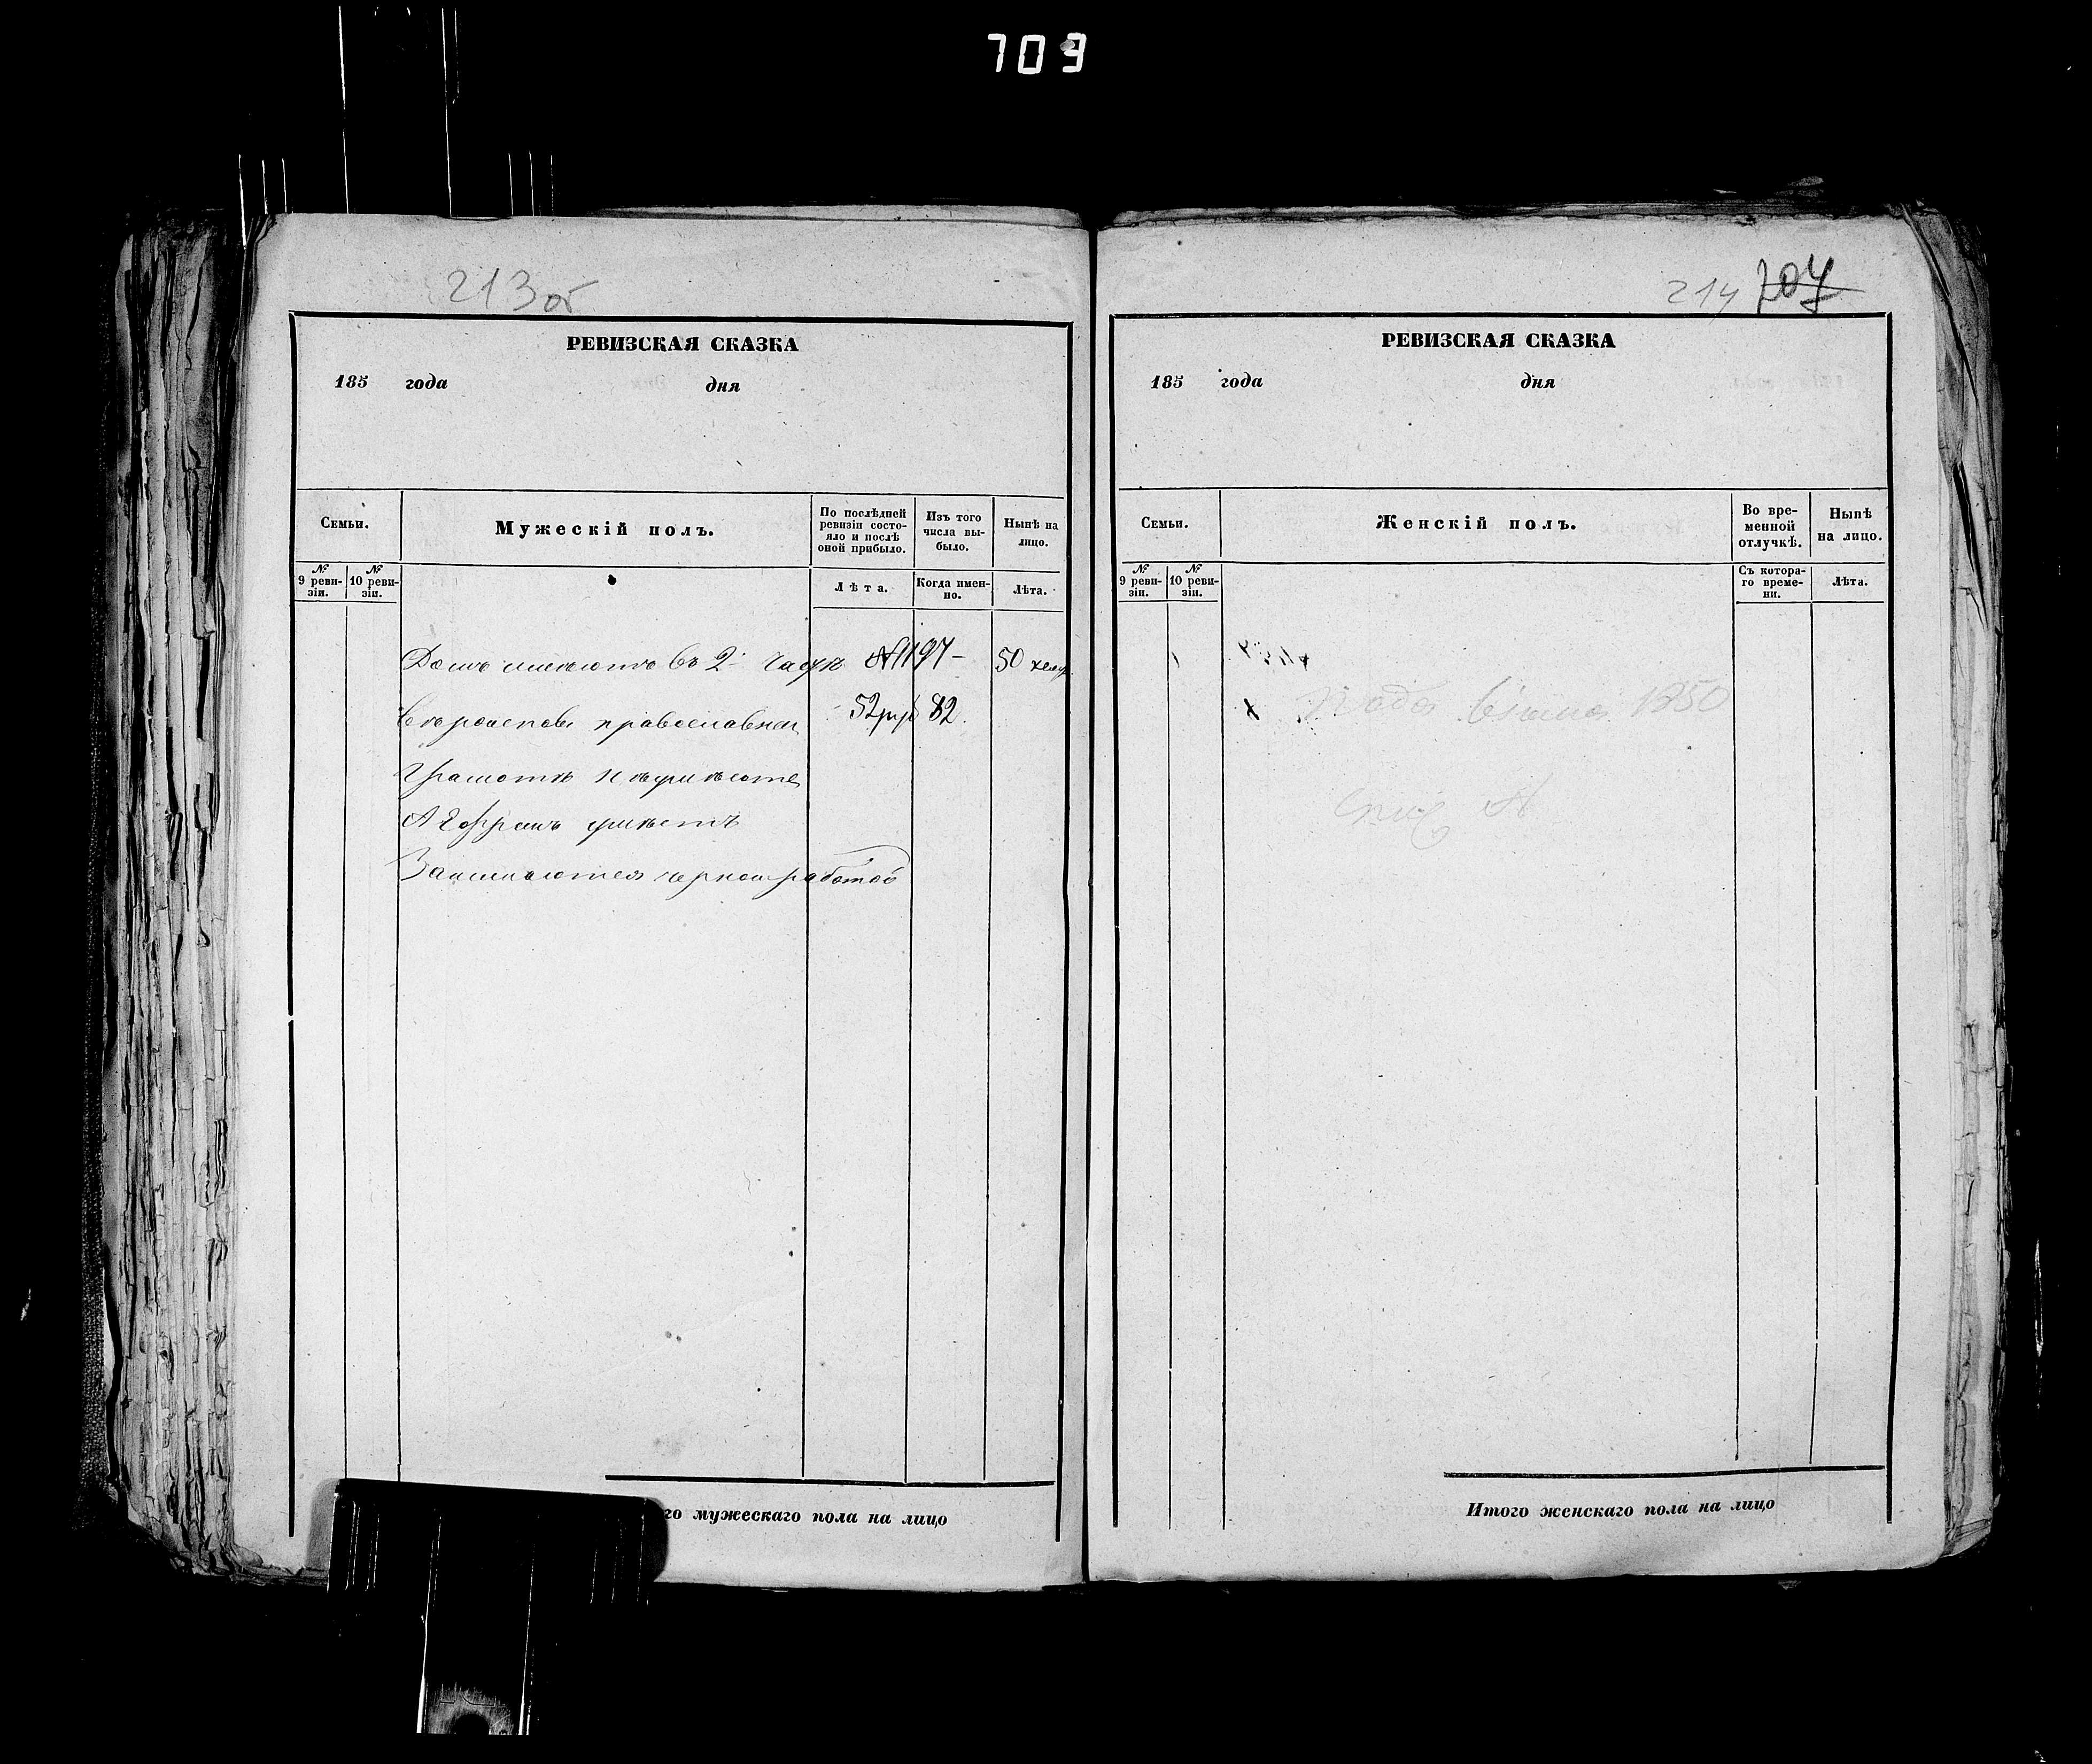 709
213 об
РЕВИЗСКАЯ СКАЗКА
185 года дня
Семьи.
Мужескій полъ.
По послѣдней ревизіи состо-
яло и послѣ оной прибыло.
Изъ того числа вы-
было.
Нынѣ на лицо.
№ 9 реви-
зіи.
№ 10 реви-
зіи.
Лѣта.
Когда имен-
но.
Лѣта.
Домъ имеютъ въ 2 части № 1197 — 50
вероисповѣ православнаи 52 руб 82
Грамотѣ неумѣютъ
А Ефремъ умѣетъ
Занимаются черной работой
го мужескаго пола на лицо
214 207
РЕВИЗСКАЯ СКАЗКА
185 года дня
Семьи.
Женскій полъ.
Во вре-
менной
отлучкѣ.
Нынѣ
на лицо.
№ 9 реви-
зіи.
№ 10 реви-
зіи.
Съ котора-
го време-
ни.
Лѣта.
1850
Итого женскаго пола на лицо